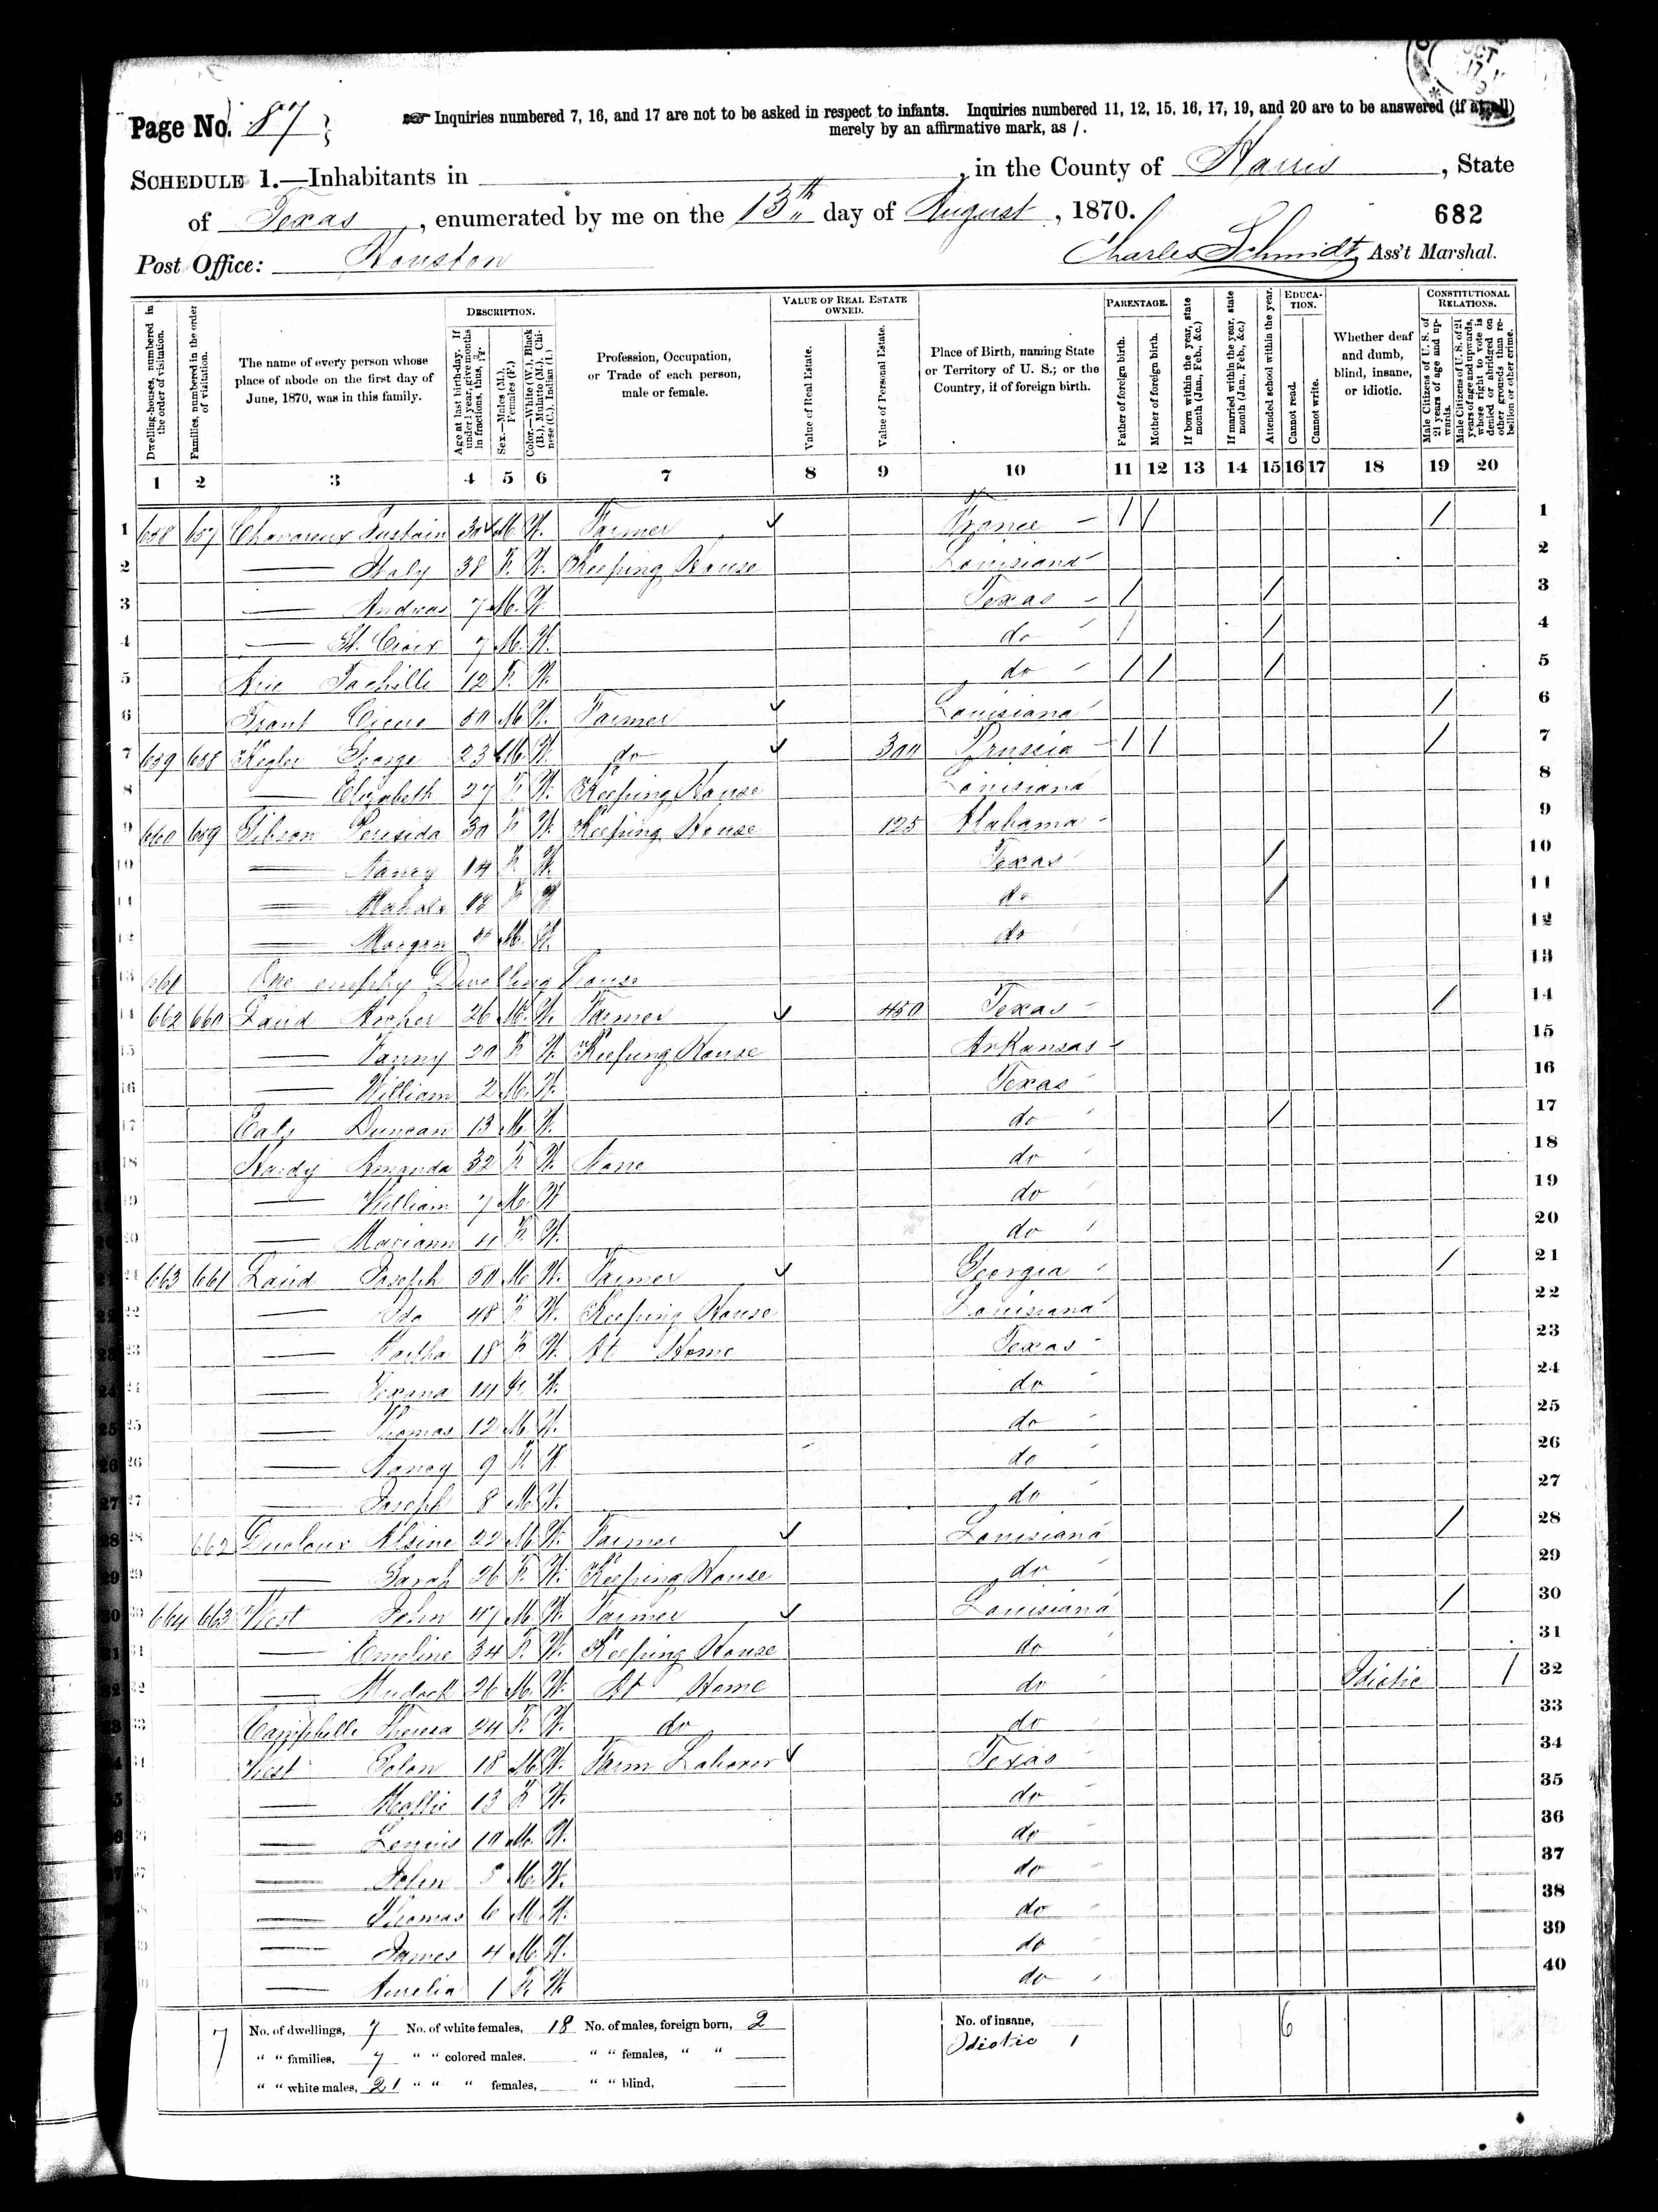 Page No. 87
Inquiries numbered 7, 16, and 17 are not to be asked in respect to infants. Inquiries numbered 11, 12, 15, 16, 17, 19, and 20 are to be answered (if at all)
merely by an affirmative mark, as /.
SCHEDULE 1.—Inhabitants in , in the County of Harris, State
of Texas, enumerated by me on the 13th day of August, 1870.
682
Post Office: Houston
Charles Schmidt, Ass't Marshal.
Dwelling-houses, numbered in the order of visitation.
Families, numbered in the order of visitation.
The name of every person whose place of abode on the first day of June, 1870, was in this family.
DESCRIPTION.
Age at last birth-day. If under 1 year, give months in fractions, thus, 3/12.
Sex.—Males (M.), Females (F.)
Color.—White (W.), Black (B.), Mulatto (M.), Chinese (C.), Indian (I.)
Profession, Occupation, or Trade of each person, male or female.
VALUE OF REAL ESTATE OWNED.
Value of Real Estate.
Value of Personal Estate.
Place of Birth, naming State or Territory of U. S.; or the Country, if of foreign birth.
PARENTAGE.
Father of foreign birth.
Mother of foreign birth.
If born within the year, state month (Jan., Feb., &c.)
If married within the year, state month (Jan., Feb., &c.)
Attended school within the year.
EDUCATION.
Cannot read.
Cannot write.
Whether deaf and dumb, blind, insane, or idiotic.
CONSTITUTIONAL RELATIONS.
Male Citizens of U. S. of 21 years of age and upwards.
Male Citizens of U. S. of 21 years of age and upwards, whose right to vote is denied or abridged on other grounds than rebellion or other crime.
1 2 3 4 5 6 7 8 9 10 11 12 13 14 15 16 17 18 19 20
1 658 657 M. W. Farmer France / / / 1
2 38 F. W. Keeping House Louisiana 2
3 Andreas 7 M. W. Texas / / 3
4 St. Croix 7 M. W. do / / 4
5 12 F. W. do / / / 5
6 50 M. W. Farmer Louisiana / 6
7 659 658 Kegler George 23 M. W. do 300 Prussia / / / 7
8 Elizabeth 27 F. W. Keeping House Louisiana 8
9 660 659 Gibson 30 F. W. Keeping House 125 Alabama 9
10 Nancy 14 F. W. Texas / 10
11 F W do / 11
12 Morgan M. W. do 12
13 661 One empty Dwelling house 13
14 662 660 Laird Archer 26 M. W. Farmer 450 Texas / 14
15 Fanny 20 F. W. Keeping House Arkansas 15
16 William 2 M. W. Texas 16
17 Duncan 13 M. W. do / 17
18 Hardy Amanda 32 F. W. None do 18
19 William 7 M. W do 19
20 Mariann 4 F. W. do 20
21 663 661 Laird Joseph 50 M. W. Farmer Georgia / 21
22 Ida 48 F. W. Keeping House Louisiana 22
23 18 F. W. At Home Texas 23
24 Texana 14 F. W. do 24
25 Thomas 12 M. W. do 25
26 Nancy 9 F. W do 26
27 Joseph 8 M. W. do 27
28 662 Ducloux Alsine 22 M. W. Farmer Louisiana / 28
29 Sarah 26 F. W. Keeping House do 29
30 664 663 West John 47 M. W. Farmer Louisiana / 30
31 Emeline 34 F. W. Keeping House do 31
32 Mudock 26 M. W. At Home do Idiotic / 32
33 Campbelle Theresa 24 F. W. do do 33
34 West Solon 18 M. W. Farm Laborer Texas 34
35 Mollie 13 F. W. do 35
36 10 M. W. do 36
37 John 8 M. W. do 37
38 Thomas 6 M. W. do 38
39 James 4 M. W. do 39
40 Aurelia 1 F. W. do 40
7 No. of dwellings, 7 No. of white females, 18 No. of males, foreign born, 2 No. of insane, 6
" " families, 7 " " colored males, " " females, " " Idiotic 1
" " white males, 21 " " " females, " " blind,